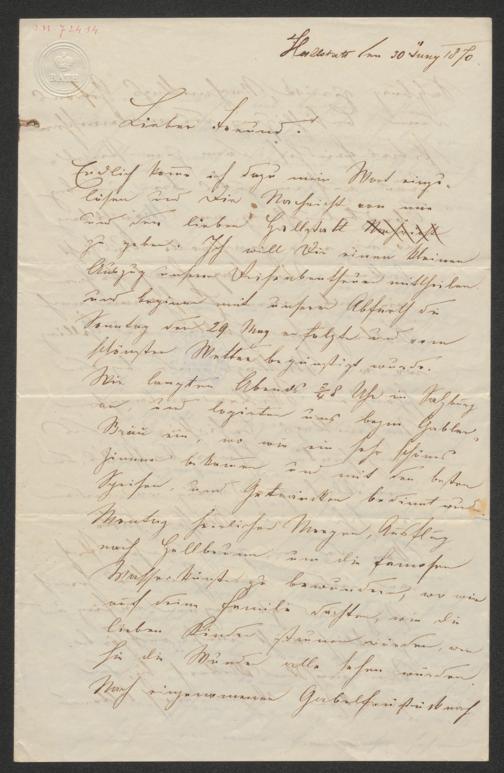 I.N. 72414
BATH
Hallstatt den 30 Juny 1870.
Lieber Freund!
Endlich komme ich dazu mein Wort einzu-
lösen und Dir Nachricht von mir
und dem lieben Hallstatt
zu geben. Ich will Dir einen kleinen
Auszug unserer Reiseabentheuer mittheilen
und beginne mit unserer Abfarth die
Sonntag den 29 May erfolgte und vom
schönsten Wetter begünstigt wurde.
Wir langten Abends 8 Uhr in Salzburg
an, und logirten uns beym Gabler-
Bräu ein, wo wir ein sehr schönes
Zimmer bekamen und mit den besten
Speisen und Getränken bedient wurden.
Montag herrlicher Morgen, Ausflug
nach Hellbrunn, um die famosen
Wasserkünste zu bewundern, wo wir
auf deine Familie dachten, wie die
lieben Kinder staunen würden, wenn
sie die Wunder alle sehen würden.
Nach eingenommenen Gabelfrühstück nach